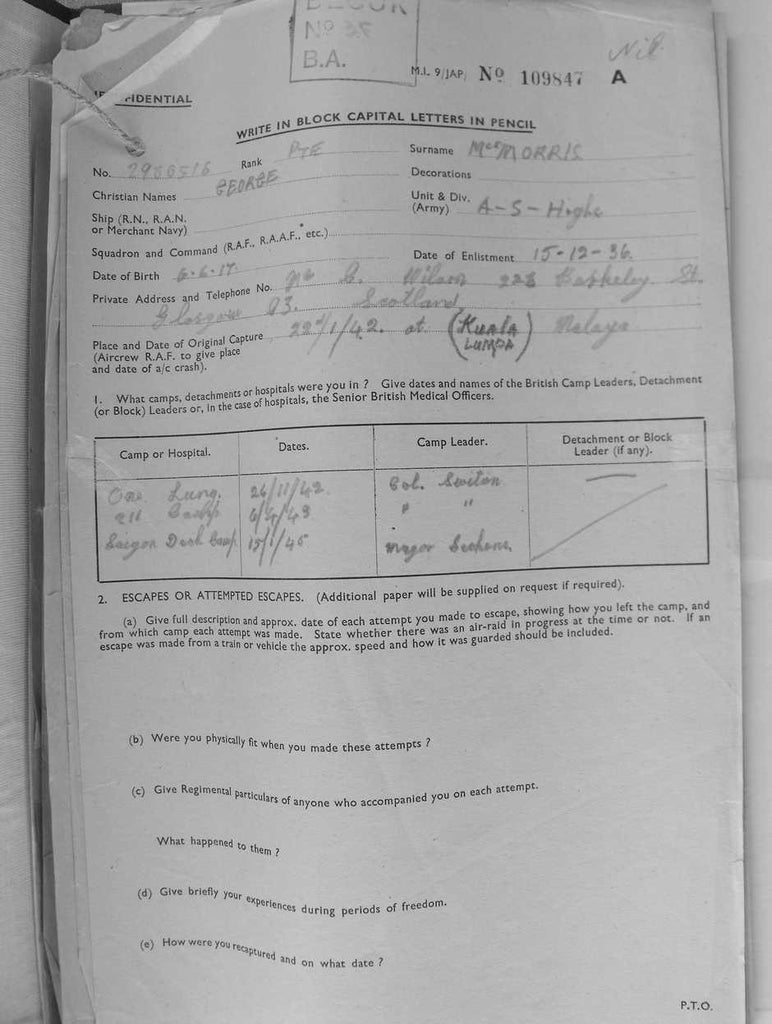 Nº
B.A.
Nil
M.I. 9/JAP/ Nº 109847 A
WRITE IN BLOCK CAPITAL LETTERS IN PENCIL
No. Rank PTE Surname McMORRIS
Christian Names GEORGE Decorations
Ship (R.N., R.A.N. or Merchant Navy) Unit & Div. (Army) A-S-Highs
Squadron and Command (R.A.F., R.A.A.F., etc.) Date of Enlistment 15-12-36.
Date of Birth 6-6-17
Private Address and Telephone No. Wilson St.
Glasgow Scotland
Place and Date of Original Capture 22nd/1/42. at (KUALA LUMPA) Malaya
(Aircrew R.A.F. to give place
and date of a/c crash).
1. What camps, detachments or hospitals were you in ? Give dates and names of the British Camp Leaders, Detachment
(or Block) Leaders or, in the case of hospitals, the Senior British Medical Officers.
Camp or Hospital. Dates. Camp Leader. Detachment or Block Leader (if any).
Lung. 26/11/42. Col.
Camp " "
Saigon Camp Major
2. ESCAPES OR ATTEMPTED ESCAPES. (Additional paper will be supplied on request if required).
(a) Give full description and approx. date of each attempt you made to escape, showing how you left the camp, and
from which camp each attempt was made. State whether there was an air-raid in progress at the time or not. If an
escape was made from a train or vehicle the approx. speed and how it was guarded should be included.
(b) Were you physically fit when you made these attempts ?
(c) Give Regimental particulars of anyone who accompanied you on each attempt.
What happened to them ?
(d) Give briefly your experiences during periods of freedom.
(e) How were you recaptured and on what date ?
P.T.O.